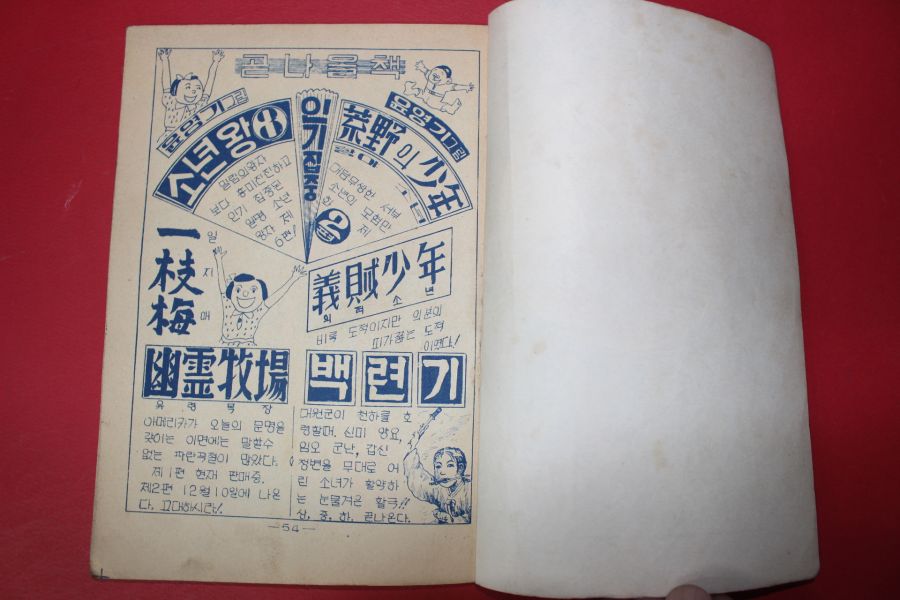 곧나올책
윤영기그림
소년왕8
밀림의왕자
보다 흥미진진하고
인기 집중된
일명 소년
왕자 제
6편!
인기집중
윤영기그림
荒野의少年
대담무쌍한 서부
소년의 모험만
화 제
2
一枝梅
일지매
義賊少年
의적소년
비록 도적이지만 의분의
피가끓는 도적
이였다!
幽霊牧場
유령목장
아메리카가 오늘의 문명을
갖이는 이면에는 말할수
없는 파란곡절이 많았다.
제1편 현재 판매중.
제2편 12월10일에 나온
다. 고대하시라!
백련기
대원군이 천하를 호
령할때. 신미 양요,
임오 군난, 갑신
정변을 무대로 어
린 소녀가 활약하
는 눈물겨운 활극!!
상, 중, 하, 끝나온다.
—54—